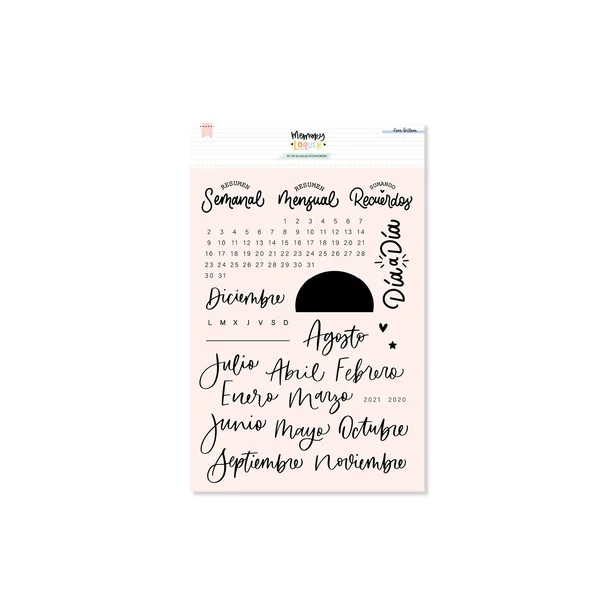 Memory
LOQUER
RESUMEN
Semanal
RESUMEN
Mensual
SUMANDO
Recuerdos
1 2 3 4 5 6 7
2 3 4 5 6 7 8 9 10 11 12 13 14
9 10 11 12 13 14 15 16 17 18 19 20 21
16 17 18 19 20 21 22 23 24 25 26 27 28
23 24 25 26 27 28 29 30 31
30 31
Día a Día
Diciembre
L M X J V S D
Agosto
Julio Abril Febrero
Enero Marzo 2021 2020
Junio Mayo Octubre
Septiembre Noviembre